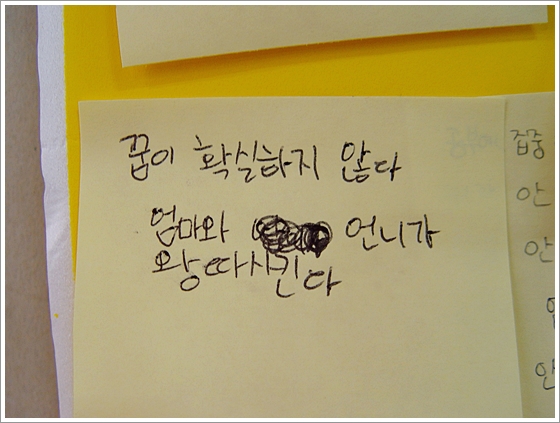 꿈이 확실하지 않다
엄마와 언니가
왕따시킨다
집중
안
안
안